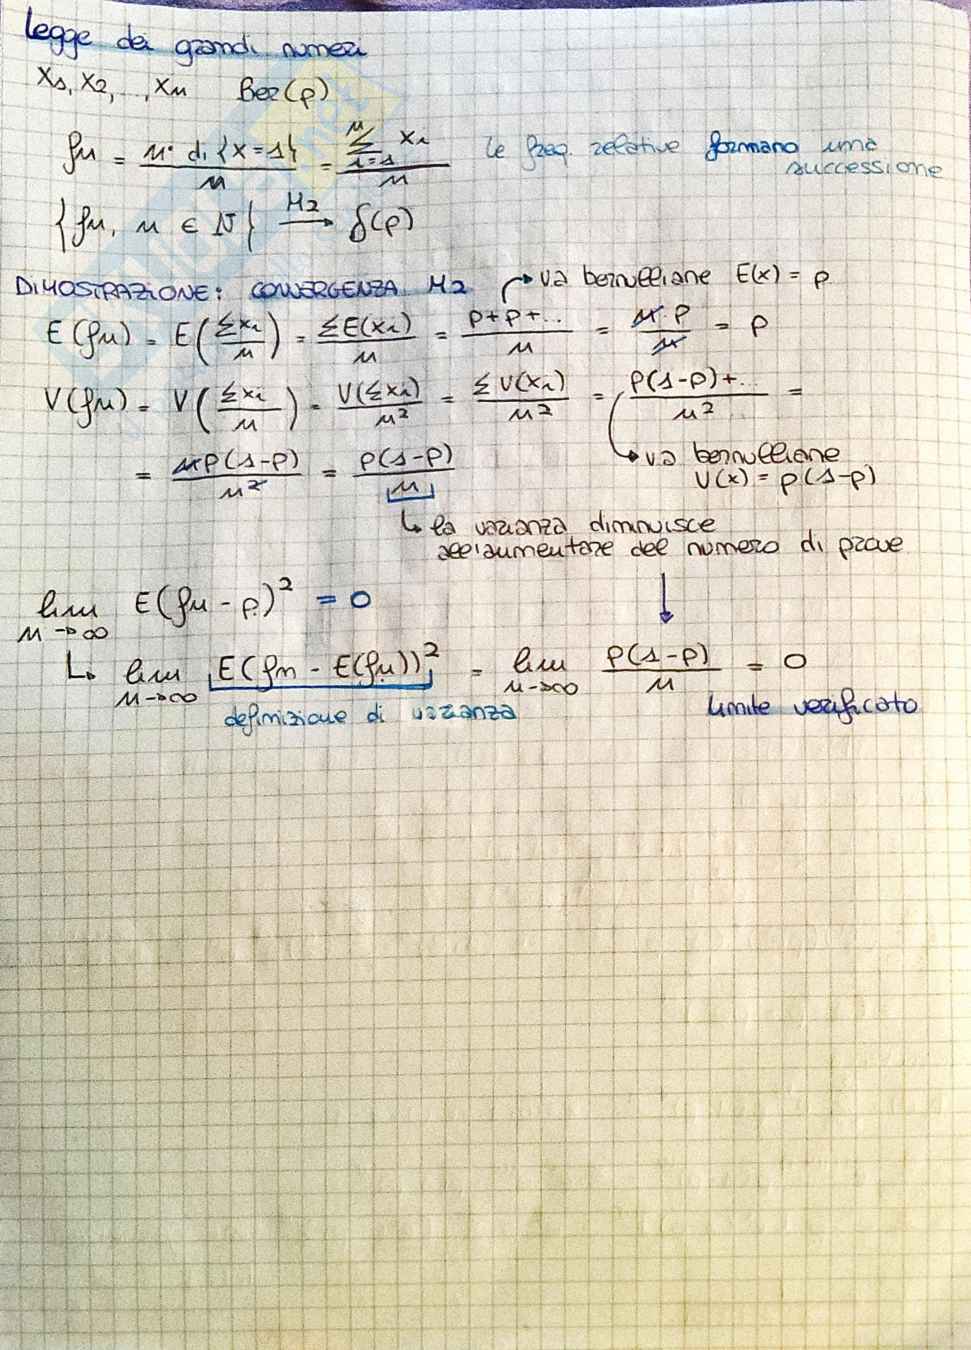 Legge dei grandi numeri
X1, X2, ..., Xn Ber(p)
fn = n° di {X=1} / n = Σ_{i=1}^{n} Xi / n le freq. relative formano una
successione
{fn, n ∈ N} —M2→ δ(p)
DIMOSTRAZIONE: CONVERGENZA M2 → va bernulliane E(x) = p
E(fn) = E(Σxi / n) = ΣE(xi) / n = p+p+... / n = n·p / n = p
V(fn) = V(Σxi / n) = V(Σxi) / n² = ΣV(xi) / n² = p(1-p)+... / n² =
→ va bernulliane
V(x) = p(1-p)
= np(1-p) / n² = p(1-p) / n
↳ la varianza diminuisce
all'aumentare del numero di prove
lim n→∞ E(fn - p)² = 0
↳ lim n→∞ E(fn - E(fn))² = lim n→∞ p(1-p) / n = 0
definizione di varianza limite verificato